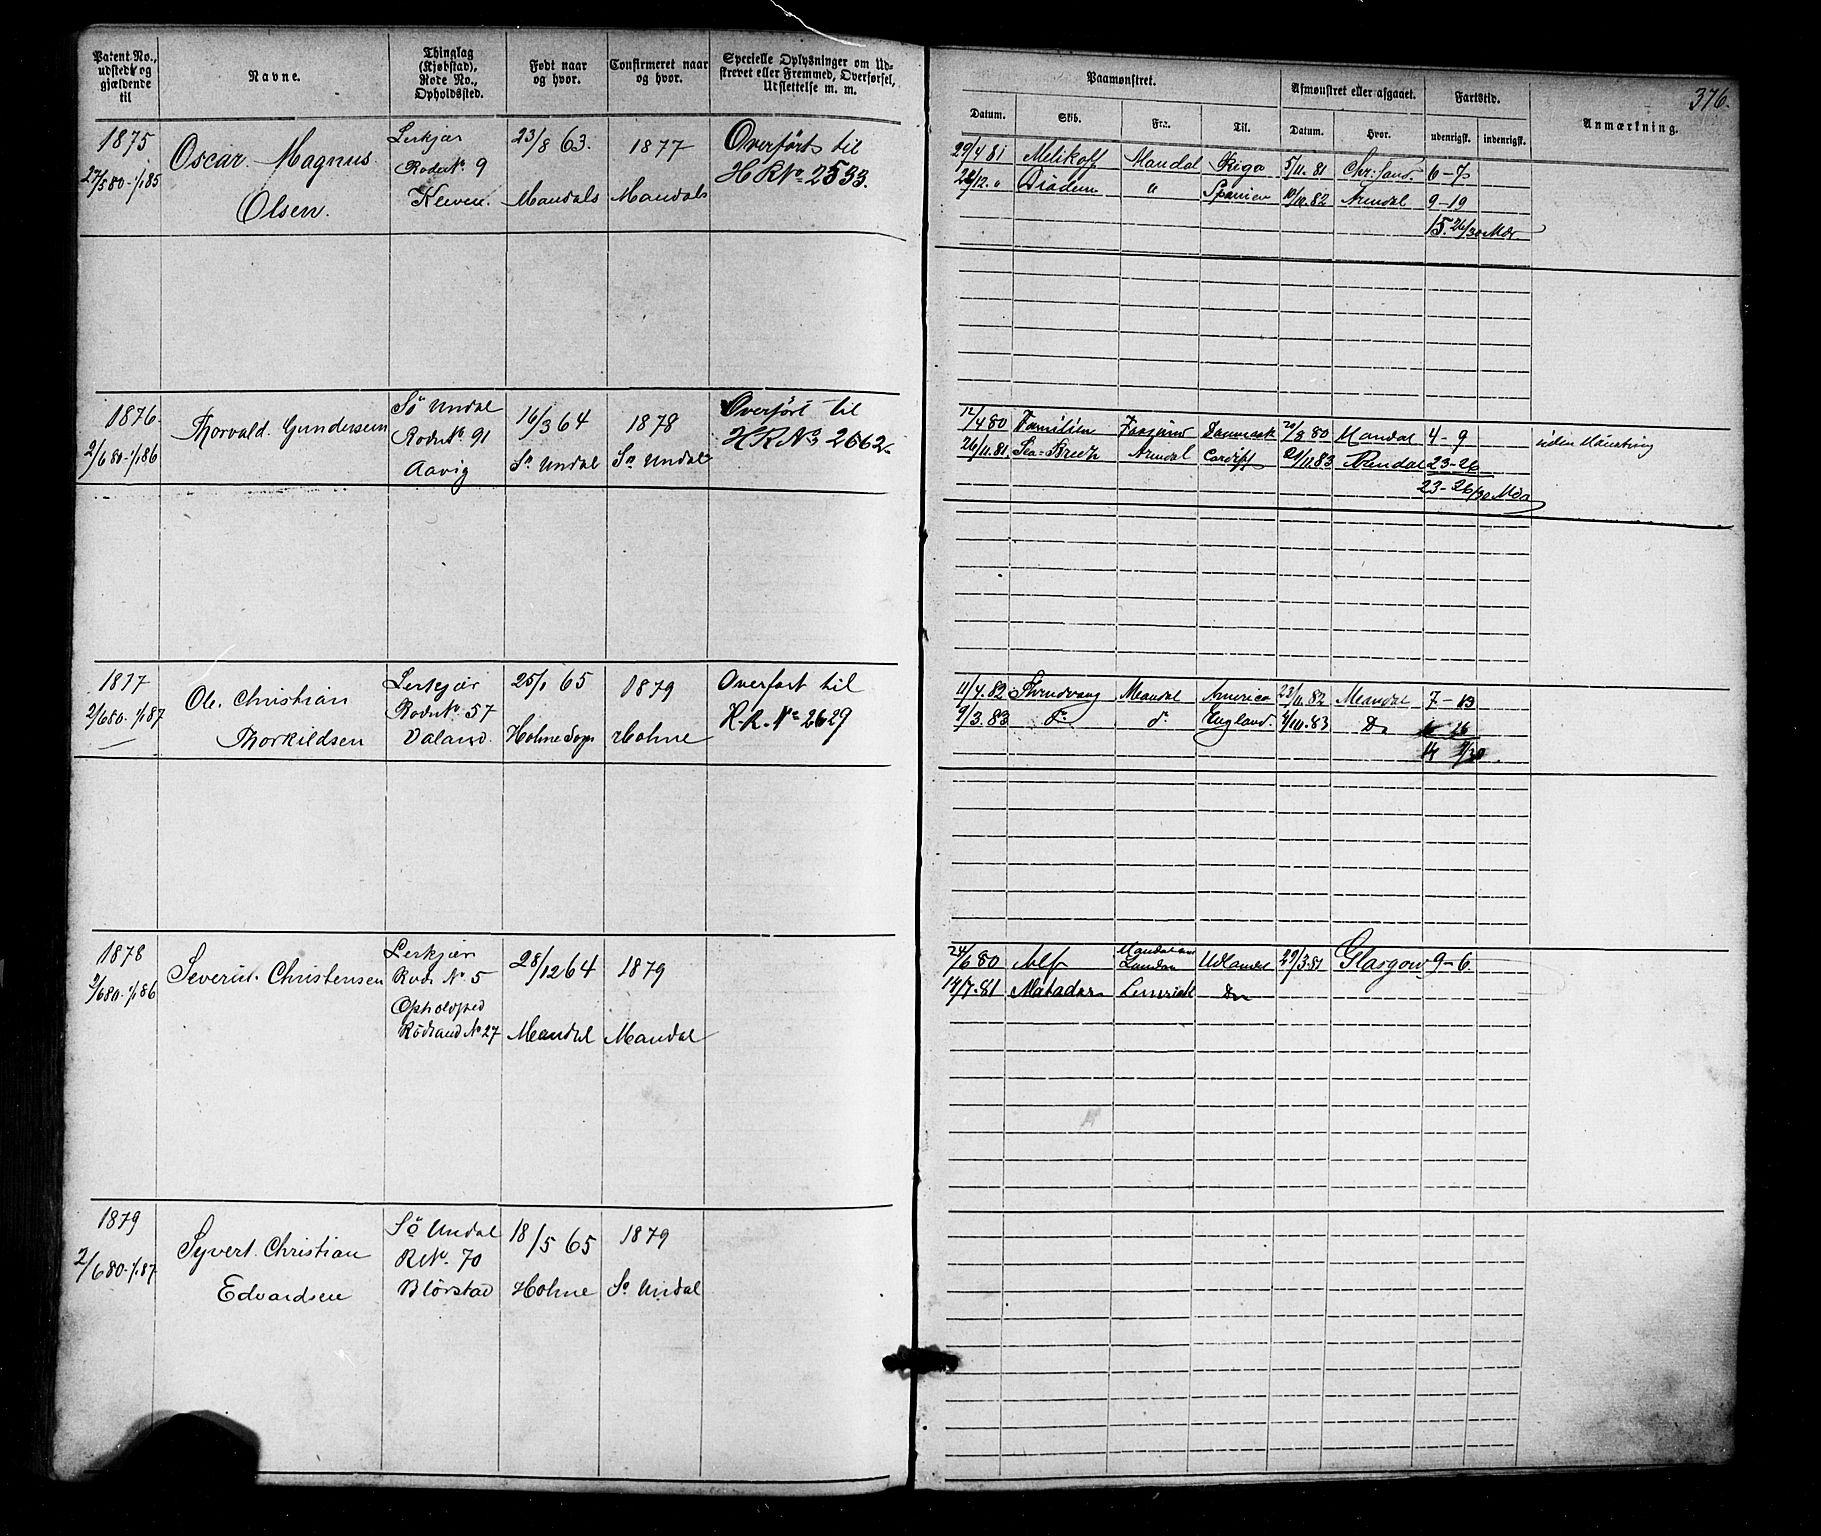 Patent No.,
udstedt og
gjældende
til
Navne.
Thinglag
(Kjøbstad),
Rode No.,
Opholdssted.
Født naar
og hvor.
Confirmeret naar
og hvor.
Specielle Oplysninger om Ud-
skrevet eller Fremmed, Overførsel,
Udslettelse m. m.
1875
27/5 80 - 1/1 85
Oscar Magnus
Olsen.
Rode No. 9
Kleven.
23/8 63.
Mandals
1877
Mandals
Overført til
HR No. 2533.
1876
2/6 80 - 1/1 86
Thorvald Gundersen
Sö Undal
Rode No. 91
Aavig
16/3 64
Sö Undal
1878
Sö Undal
Overført til
HR No 2662
1877
2/6 80 - 1/1 87
Ole Christian
Thorkildsen
Rode No. 57
Valand.
25/1 65
Holme Sogn
1879
Holme
Overført til
H.R. No 2629
1878
2/6 80 - 1/1 86
Severin Christensen
Rode No 5
Opholdssted
Rödland No 27
28/12 64
Mandal
1879
Mandal
1879
2/6 80 - 1/1 87
Syvert Christian
Edvardsen
Sö Undal
R No. 70
Blörstad
18/5 65
Holme
1879
Sö Undal
376.
Paamønstret.
Afmønstret eller afgaaet.
Fartstid.
Anmærkning.
Datum.
Skib.
Fra.
Til.
Datum.
Hvor.
udenrigst.
indenrigst.
29/4 81 Melikoff Mandal Riga 5/11. 81 Chr: sand. 6 - 7
Diadem " Spanien 10/10. 82 Arendal 9 - 19
15. 26/30 Mdr.
12/4 80 Familien Danmark 20/8 80 Mandal 4 - 9 uden Mönstring
26/11. 81 Arendal Cardiff 21/11. 83 Arendal 23 - 26
23 - 26/30 Mdr
11/4. 82 Mandal America 23/11. 82 Mandal 7 - 13
9/3. 83 do do England. 4/10. 83 Do
24/6 80 Alf Mandal London Udlandet 29/3. 81 Glasgow 9 - 6
14/7. 81 Matador Limrick Do